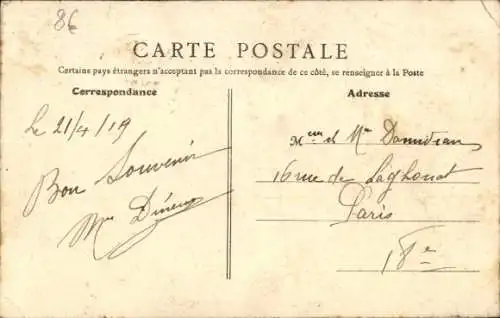 86
CARTE POSTALE
Certains pays étrangers n'acceptant pas la correspondance de ce côté, se renseigner à la Poste
Correspondance
Le 21/4/19
Bon Souvenir
Mme
Adresse
et Mme
16 rue de Laghouat
Paris
18e